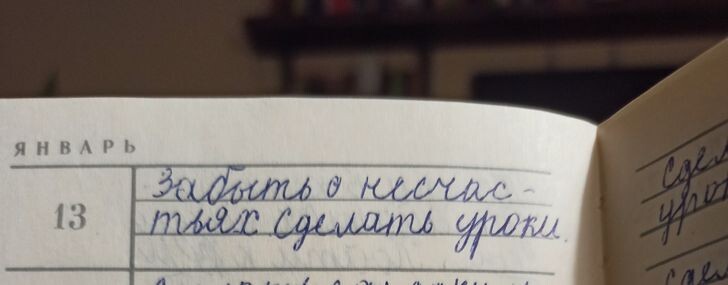 ЯНВАРЬ
13
Забыть о несчас-
тьях сделать уроки.
сдел
урок